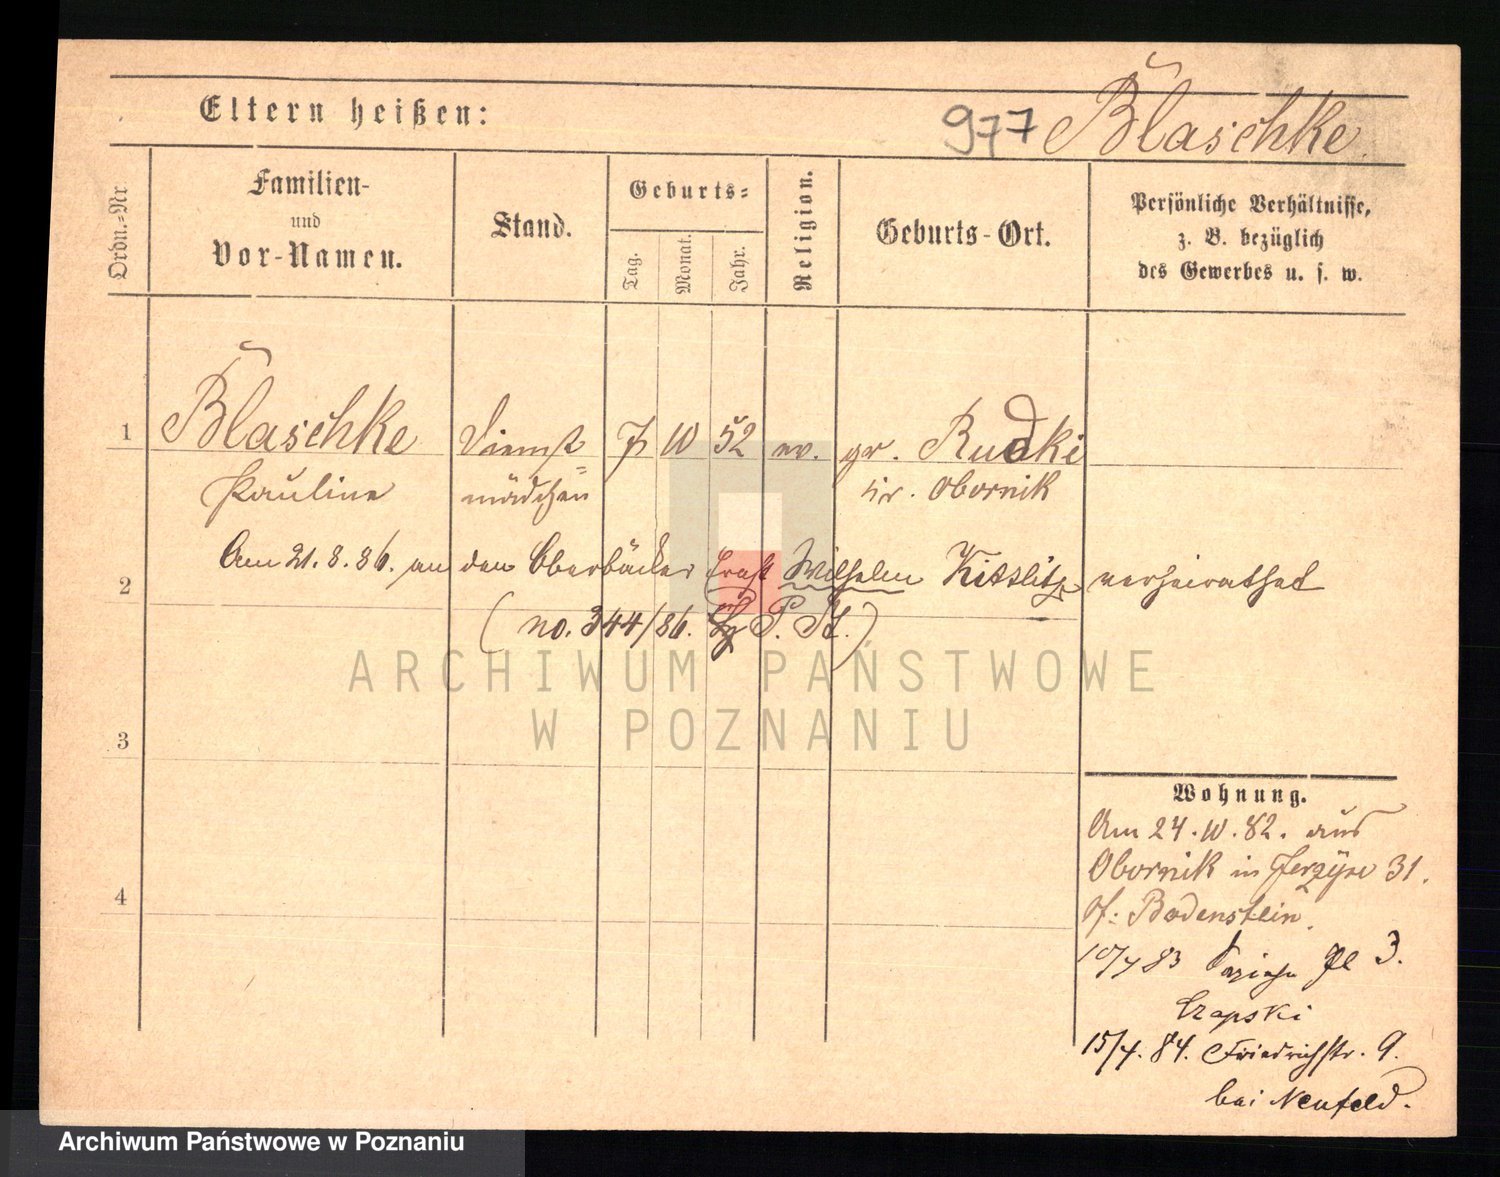 Eltern heißen:
977 Blaschke.
Ordn.-Nr
Familien-
und
Vor-Namen.
Stand.
Geburts-
Tag.
Monat.
Jahr.
Religion.
Geburts-Ort.
Persönliche Verhältnisse,
z. B. bezüglich
des Gewerbes u. s. w.
1 Blaschke Dienst 7 10 52 ev. gr. Rudki
Pauline mädchen Kr. Obornik
Am 21.8.86. an den Oberbäcker Ernst Wilhelm Kittlitz verheirathet
2
(no. 344/86. P. St.)
ARCHIWUM PAŃSTWOWE
W POZNANIU
3
Wohnung.
Am 24.10.82. aus
Obornik in Jerzyce 31.
bf. Bodenstein.
4
10/4 83 Pl 3.
Czapski
15/4. 84. Friedrichstr. 9.
bei Neufeld.
Archiwum Państwowe w Poznaniu